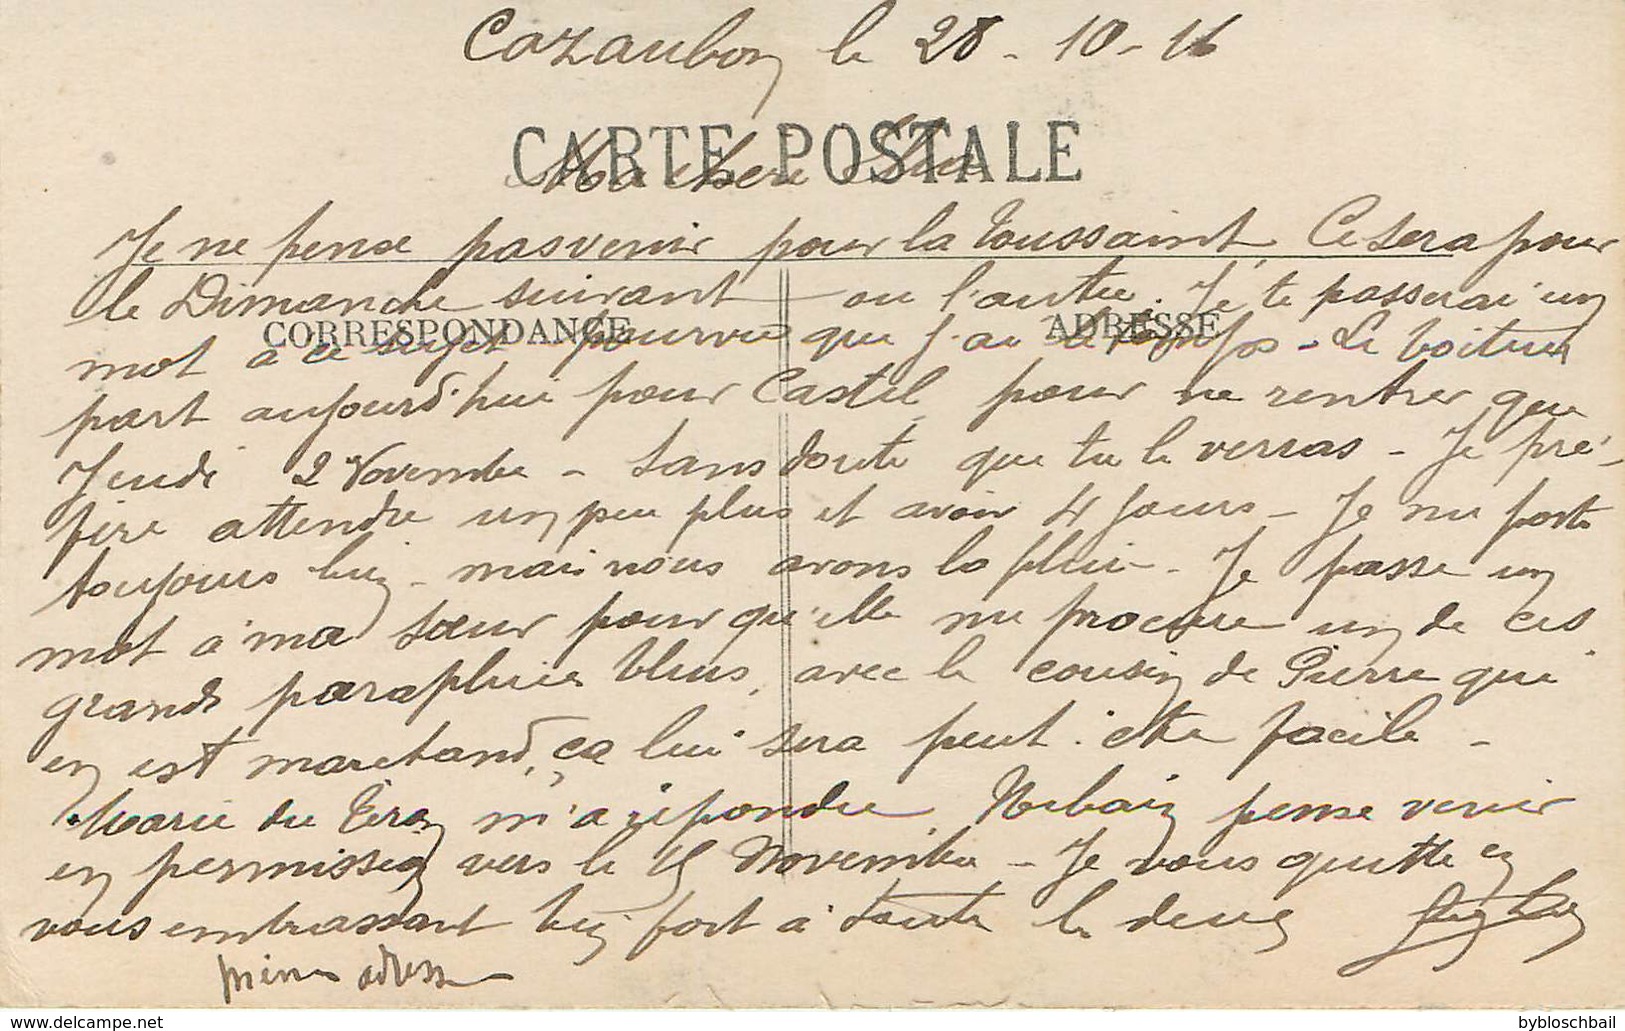 Cazaubon le 28 - 10 - 16
CARTE POSTALE
Ma chère
Je ne pense pas venir pour la Toussaint, Ce sera pour
le Dimanche suivant ou l'autre. Je te passerai un
CORRESPONDANCE ADRESSE
mot à ce sujet pourvu que j'ai le temps - La voiture
part aujourd'hui pour Castel pour ne rentrer que
Jeudi 2 Novembre - Sans doute que tu le verras - Je pré-
fère attendre un peu plus et avoir 4 jours - Je me porte
toujours bien - mais nous avons la pluie - Je passe un
mot à ma sœur pour qu'elle me procure un de ces
grands parapluies bleus, avec le cousin de Pierre qui
en est marchand, ça lui sera peut-être facile -
Marie du m'a répondu Urbain pense venir
en permission vers le 15 Novembre - Je vous quitte en
vous embrassant bien fort à toute le deux
même adresse
bybloschbail